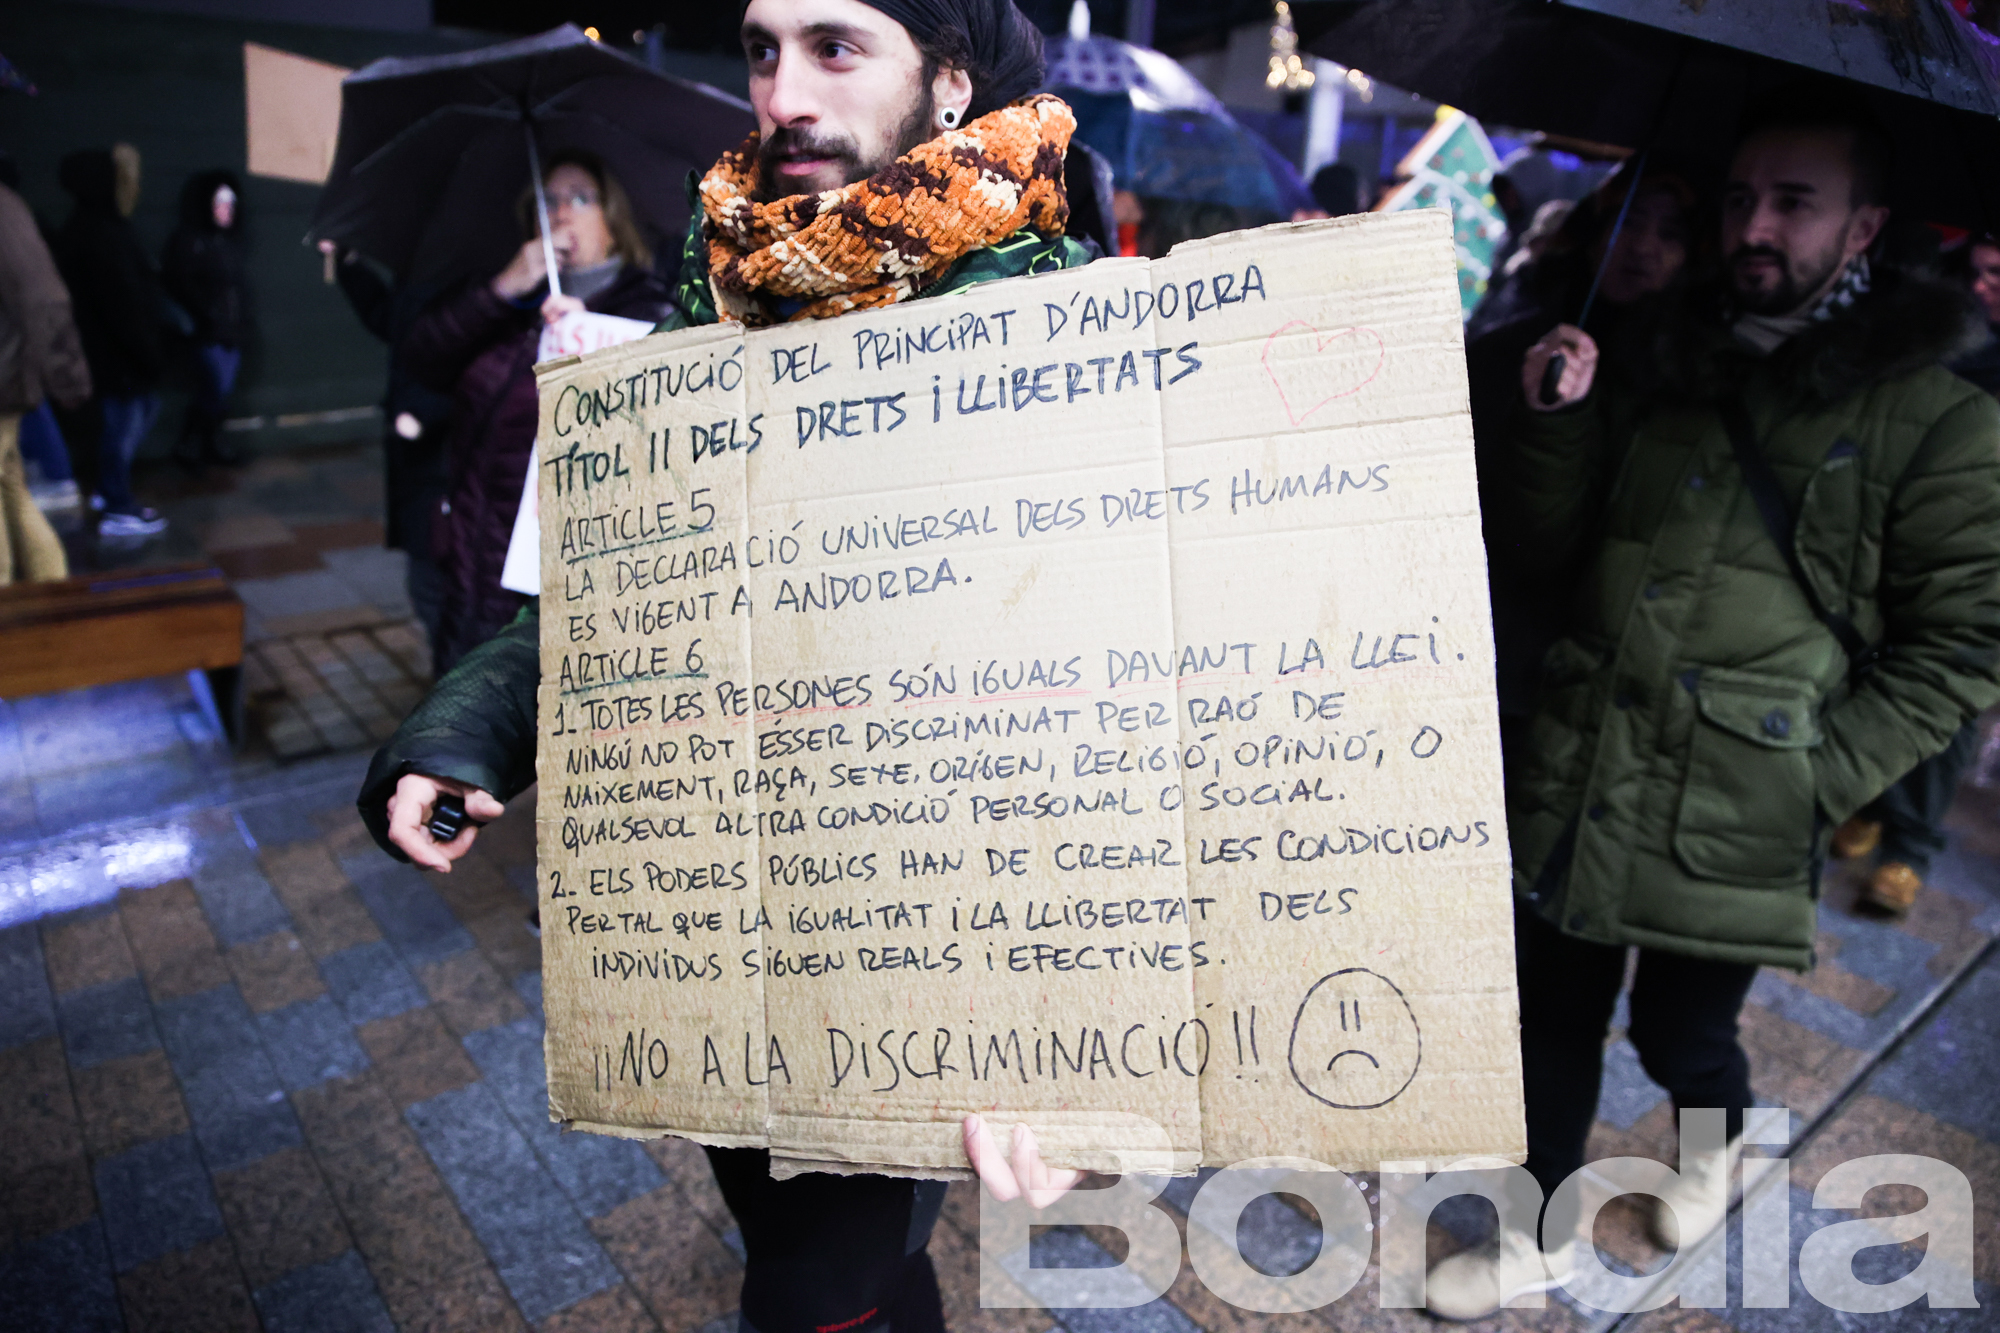 CONSTITUCIÓ DEL PRINCIPAT D'ANDORRA
TÍTOL II DELS DRETS i LLIBERTATS
ARTICLE 5
LA DECLARACIÓ UNIVERSAL DELS DRETS HUMANS
ES VIGENT A ANDORRA.
ARTICLE 6
1_ TOTES LES PERSONES SÓN IGUALS DAVANT LA LLEI.
NINGÚ NO POT ÉSSER DISCRIMINAT PER RAÓ DE
NAIXEMENT, RAÇA, SEXE, ORÍGEN, RELIGIÓ, OPINIÓ, O
QUALSEVOL ALTRA CONDICIÓ PERSONAL O SOCIAL.
2_ ELS PODERS PÚBLICS HAN DE CREAR LES CONDICIONS
PER TAL QUE LA IGUALITAT I LA LLIBERTAT DELS
INDIVIDUS SIGUEN REALS I EFECTIVES.
¡¡NO A LA DISCRIMINACIÓ!!
Bondia